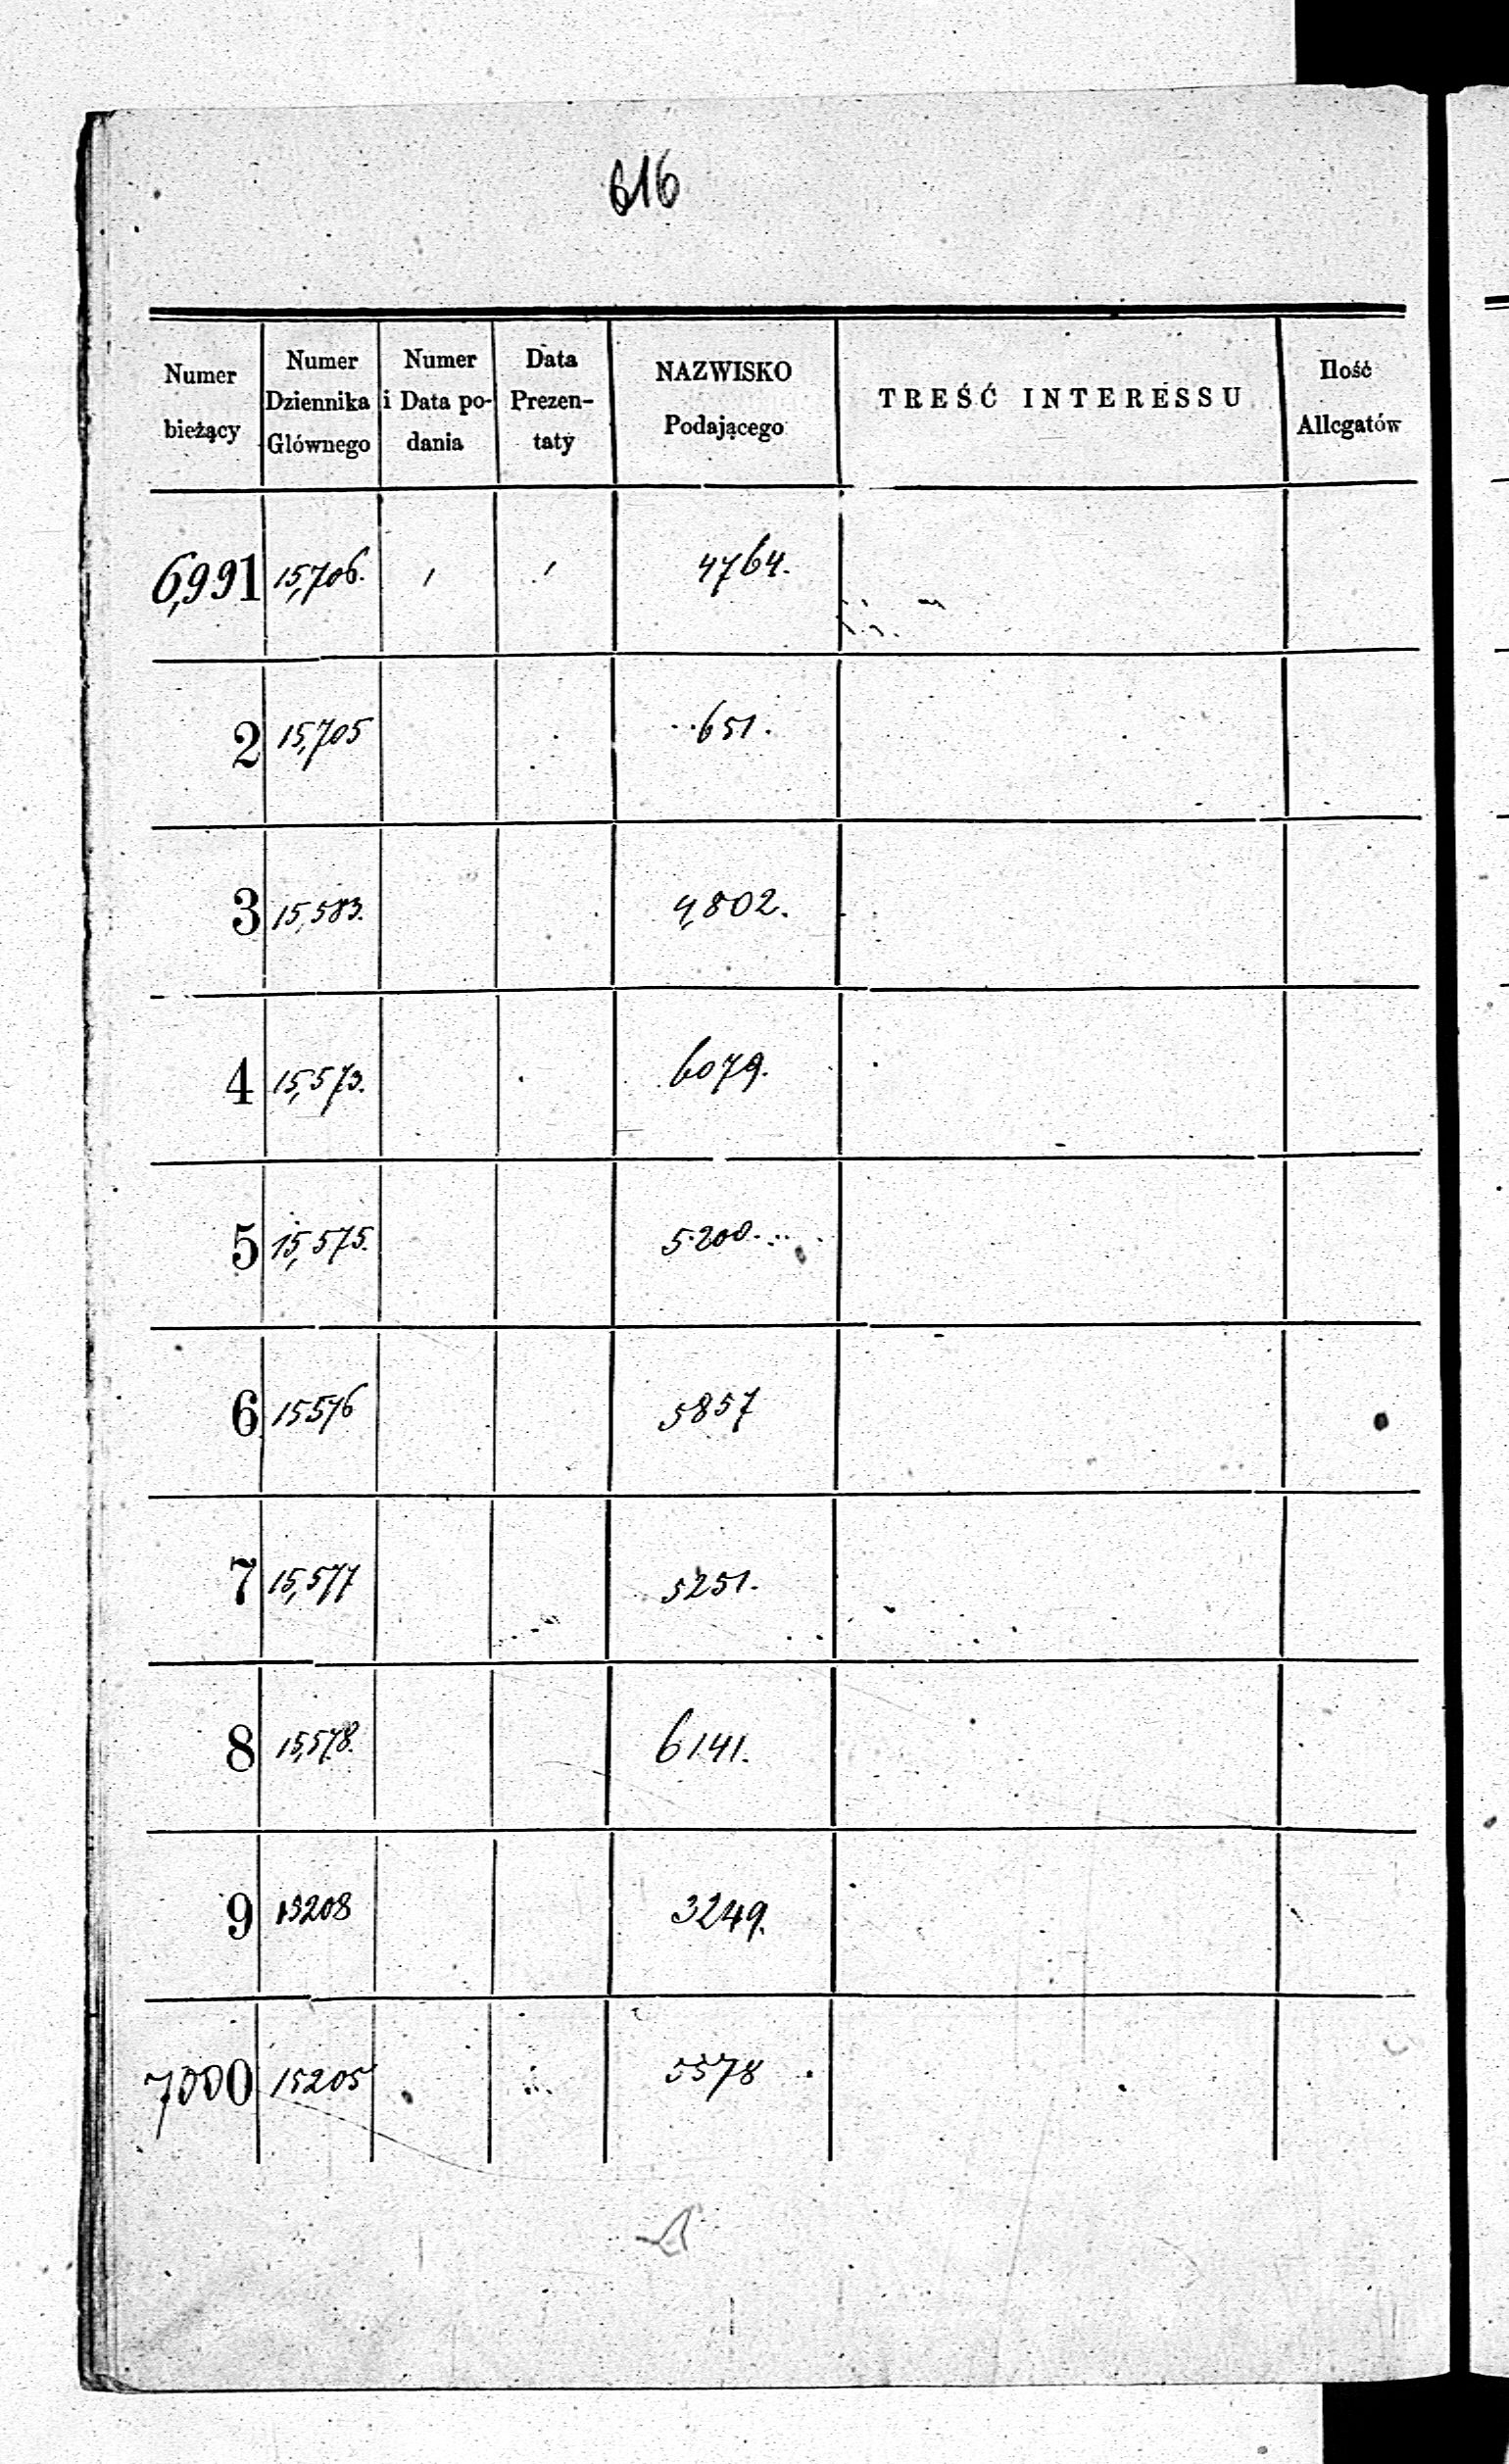 616
Numer bieżący | Numer Dziennika Głównego | Numer i Data podania | Data Prezentaty | NAZWISKO Podającego | TREŚĆ INTERESSU | Ilość Allegatów
6,991 | 15,706. | 4764.
2 | 15,705 | 651.
3 | 15,583. | 4,802.
4 | 15,573. | 6079.
5 | 15,575. | 5200.
6 | 15576 | 5857
7 | 15,577 | 5251.
8 | 15,578. | 6141.
9 | 15208 | 3249.
7000 | 15205 | 5578